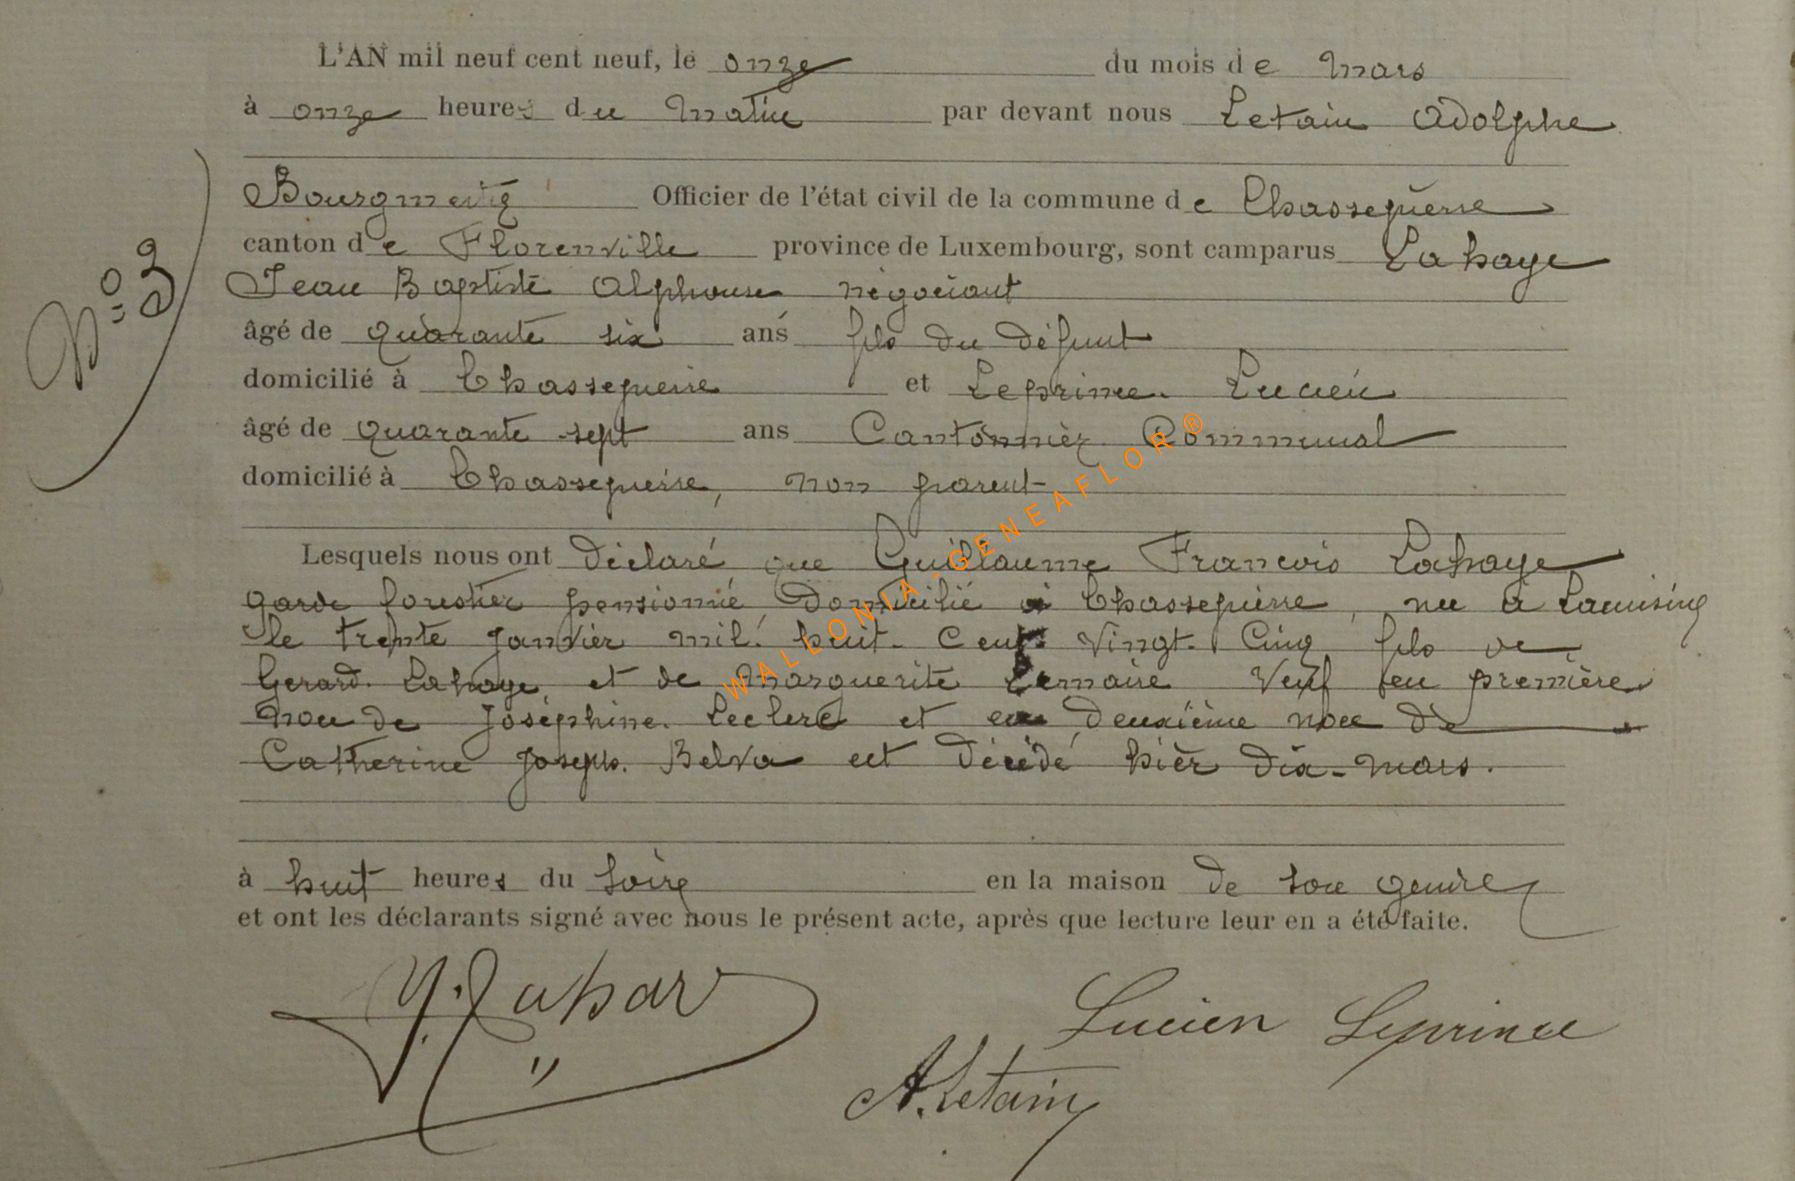 L'AN mil neuf cent neuf, le onze du mois de Mars
à onze heures du Matin par devant nous Letain Adolphe
Bourgmestre Officier de l'état civil de la commune de Chassepierre
canton de Florenville province de Luxembourg, sont camparus Lahaye
Jean Baptiste Alphonse négociant
âgé de quarante six ans fils du défunt
domicilié à Chassepierre et Leprince Lucien
âgé de quarante sept ans Cantonnier Communal
domicilié à Chassepierre, non parent
N° 3
Lesquels nous ont déclaré que Guillaume Francois Lahaye
garde forestier pensionné domicilié à Chassepierre, né à
le trente janvier mil huit cent vingt cinq fils de
Gerard Lahaye et de Marguerite Lemaire Veuf en première
noce de Joséphine Leclerc et en deuxième noce de
Catherine Joseph Belva est décédé hier dix-mars.
à huit heures du soir en la maison de son gendre
et ont les déclarants signé avec nous le présent acte, après que lecture leur en a été faite.
Lucien Leprince
A. Letain
WALLONIA-GENEAFLOR®